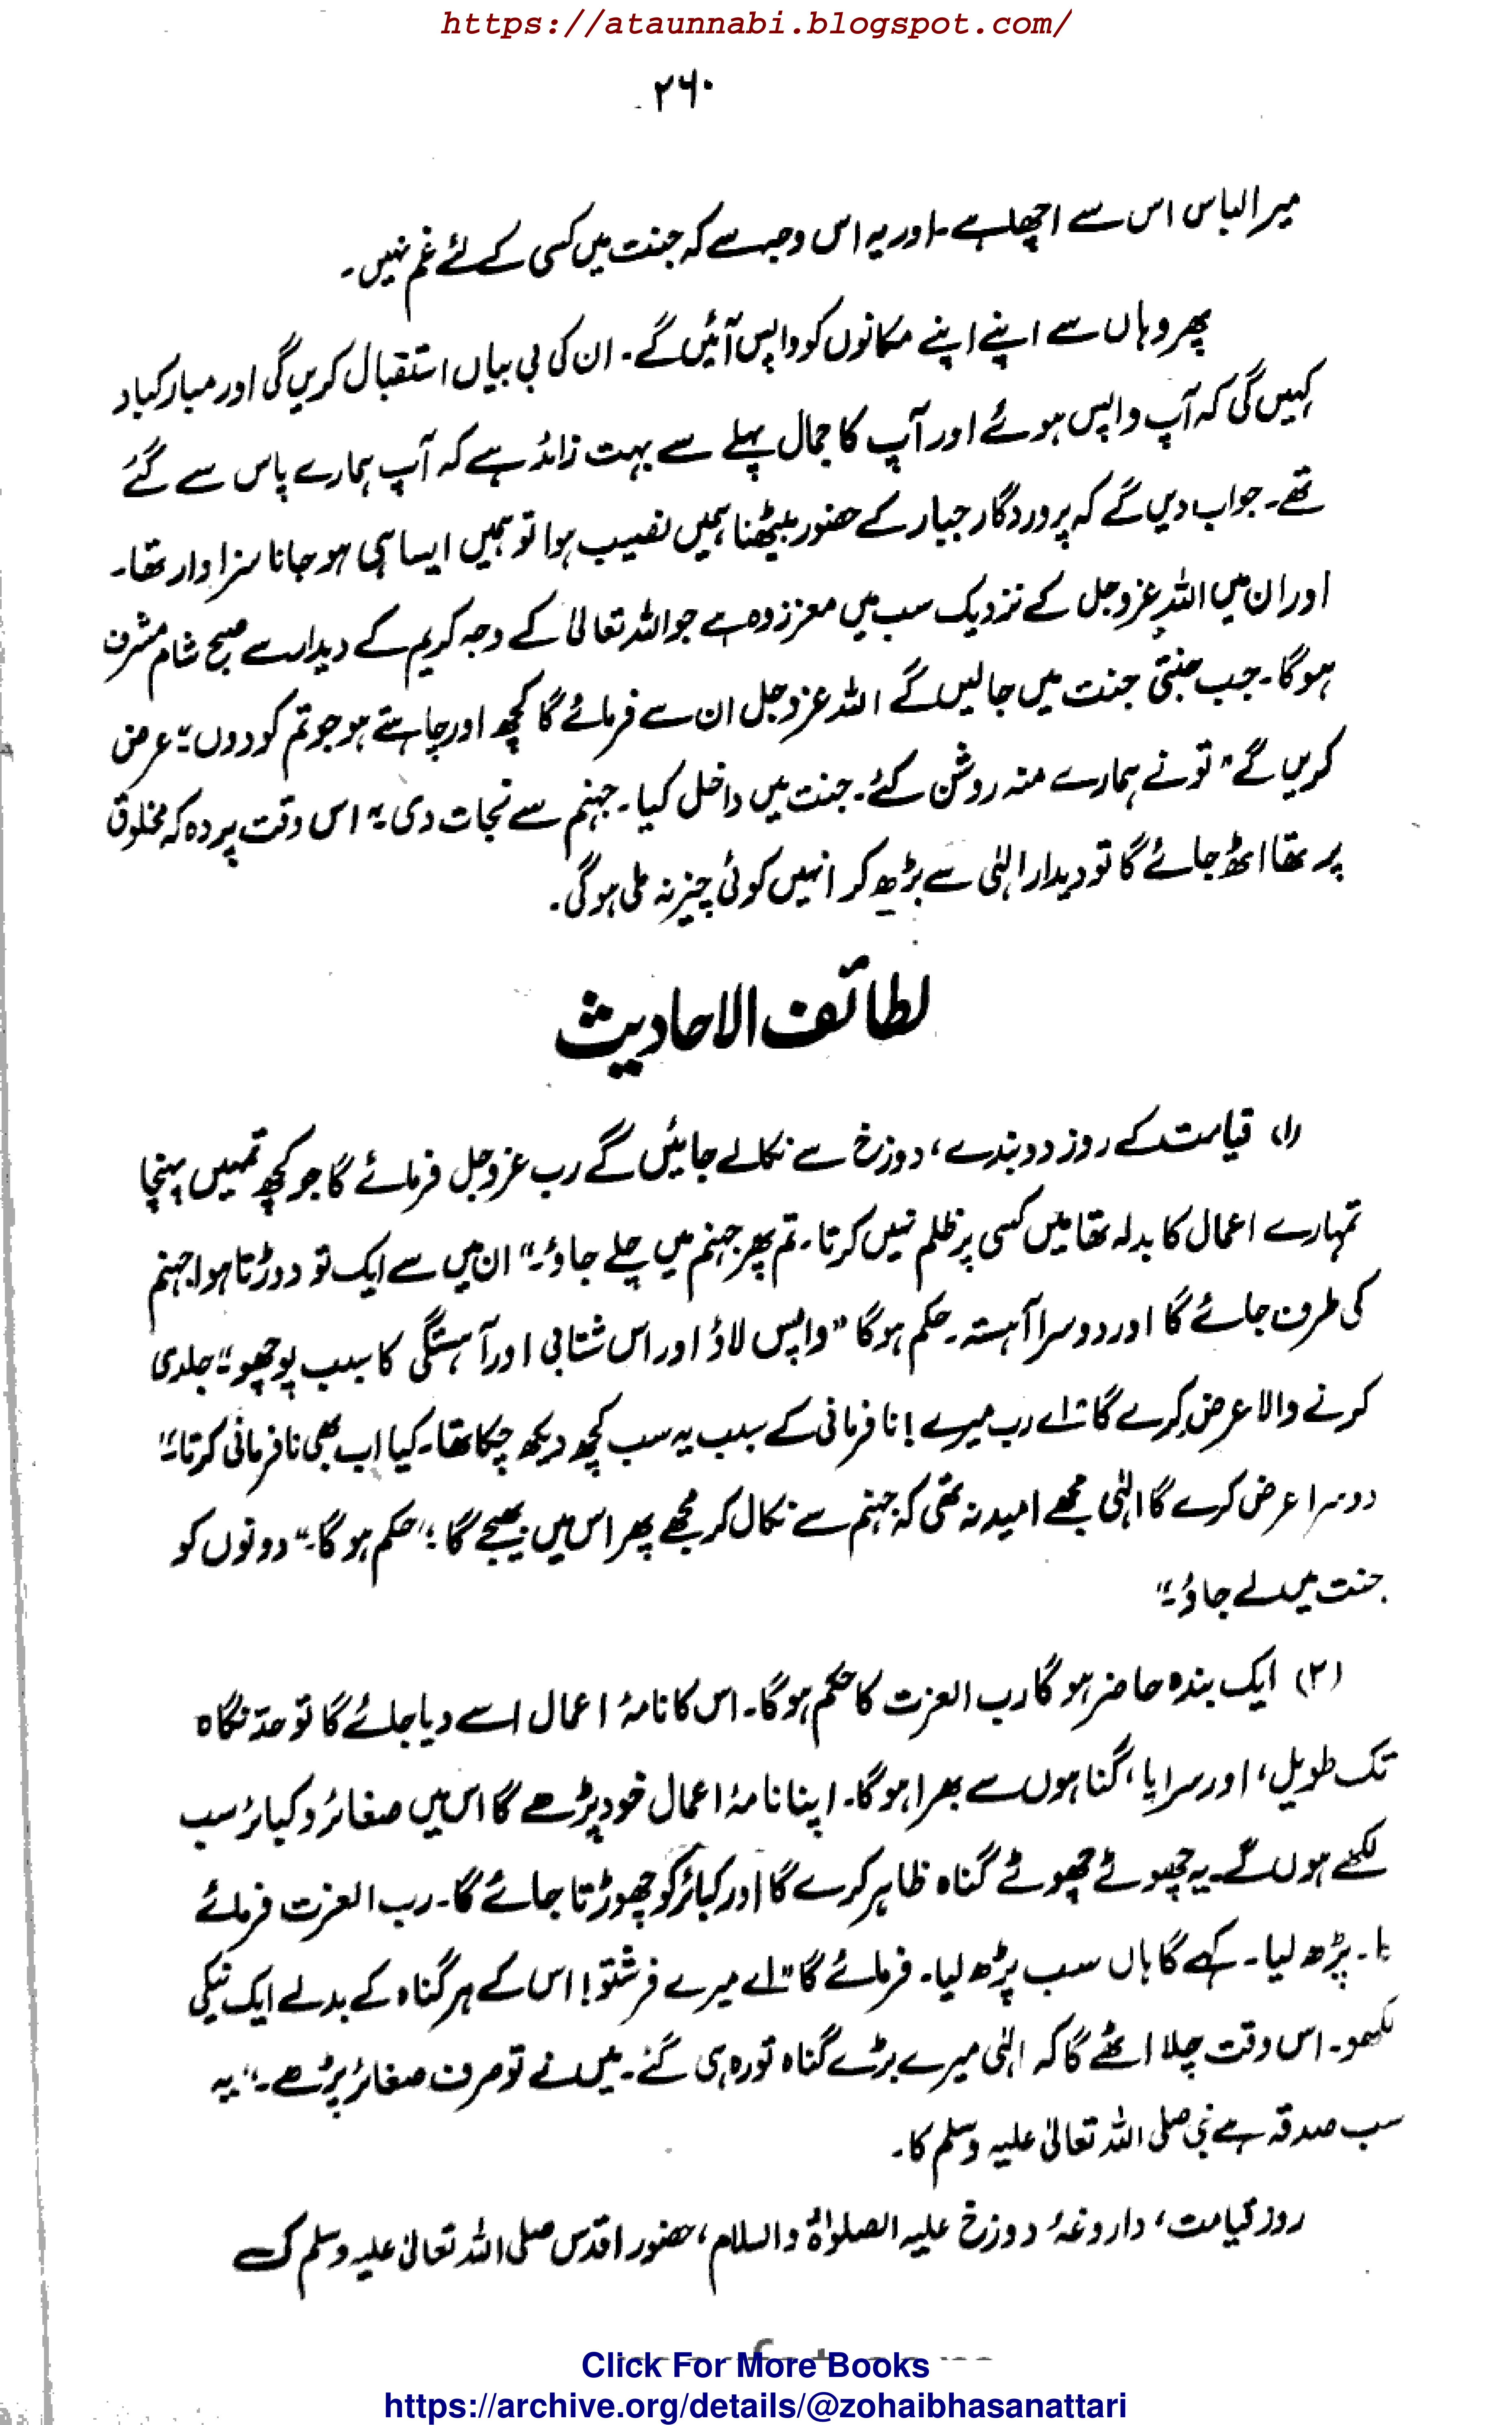 https://ataunnabi.blogspot.com/
۲۶۰
میرا لباس اس سے اچھا ہے ۔ اور یہ اس وجہ سے کہ جنت میں کسی کے لئے غم نہیں ۔
پھر وہاں سے اپنے اپنے مکانوں کو واپس آئیں گے ۔ ان کی بی بیاں استقبال کریں گی اور مبارکباد
کہیں گی کہ آپ واپس ہوئے اور آپ کا جمال پہلے سے بہت زائد ہے کہ آپ ہمارے پاس سے گئے
تھے ۔ جواب دیں گے کہ پروردگار جبار کے حضور بیٹھنا ہمیں نصیب ہوا تو ہمیں ایسا ہی ہو جانا سزا دار تھا ۔
اور ان میں اللہ عزوجل کے نزدیک سب میں معزز وہ ہے جو اللہ تعالیٰ کے وجہ کریم کے دیدار سے صبح شام مشرف
ہوگا ۔ جب جنتی جنت میں جالیں گے اللہ عزوجل ان سے فرمائے گا کچھ اور چاہتے ہو جو تم کو دوں ؟" عرض
کریں گے " تو نے ہمارے منہ روشن کئے ۔ جنت میں داخل کیا ۔ جہنم سے نجات دی ۔" اس وقت پردہ کہ مخلوق
پر تھا اٹھ جائے گا تو دیدار الہٰی سے بڑھ کر انہیں کوئی چیز نہ ملی ہوگی ۔
لطائف الاحادیث
(۱) قیامت کے روز دو بندے ، دوزخ سے نکالے جائیں گے رب عزوجل فرمائے گا جو کچھ تمہیں پہنچا
تمہارے اعمال کا بدلہ تھا میں کسی پر ظلم نہیں کرتا ۔ تم پھر جہنم میں چلے جاؤ ۔" ان میں سے ایک تو دوڑتا ہوا جہنم
کی طرف جائے گا اور دوسرا آہستہ ۔ حکم ہوگا " واپس لاؤ اور اس شتابی اور آہستگی کا سبب پوچھو ۔" جلدی
کرنے والا عرض کرے گا " اے رب میرے ! نافرمانی کے سبب یہ سب کچھ دیکھ چکا تھا ۔ کیا اب بھی نافرمانی کرتا ۔"
دوسرا عرض کرے گا الہٰی مجھے امید نہ تھی کہ جہنم سے نکال کر مجھے پھر اس میں بھیجے گا ؛" حکم ہوگا ۔ " دونوں کو
جنت میں لے جاؤ ۔"
(۲) ایک بندہ حاضر ہوگا رب العزت کا حکم ہوگا ۔ اس کا نامۂ اعمال اسے دیا جائے گا تو حدّ نگاہ
تک طویل ، اور سراپا ، گناہوں سے بھرا ہوگا ۔ اپنا نامۂ اعمال خود پڑھے گا اس میں صغائر و کبائر سب
لکھے ہوں گے ۔ یہ چھوٹے چھوٹے گناہ ظاہر کرے گا اور کبائر کو چھوڑتا جائے گا ۔ رب العزت فرمائے
گا ۔ پڑھ لیا ۔ کہے گا ہاں سب پڑھ لیا ۔ فرمائے گا " اے میرے فرشتو ! اس کے ہر گناہ کے بدلے ایک نیکی
لکھو ۔ اس وقت چلا اٹھے گا کہ الہٰی میرے بڑے گناہ تو رہ ہی گئے ۔ میں نے تو صرف صغائر پڑھے ۔" یہ
سب صدقہ ہے نبی صلی اللہ تعالیٰ علیہ وسلم کا ۔
روز قیامت ، داروغۂ دوزخ علیہ الصلوٰۃ والسلام ، حضور اقدس صلی اللہ تعالیٰ علیہ وسلم کے
Click For More Books
https://archive.org/details/@zohaibhasanattari